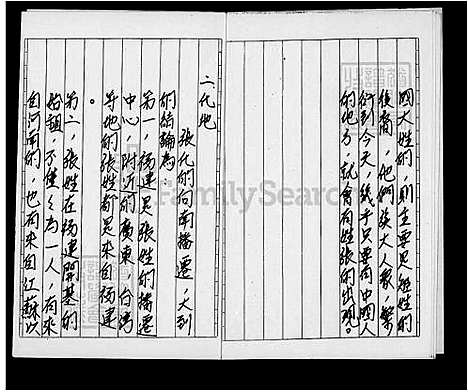 四大姓的,則主要是張姓的
後裔,他們張大人家,繁
衍到今天,幾乎只要有中國人
的地方,就會有姓張的出現。
二代地
張化的向南播遷,大到
的結論為:
第一,福建是張姓的播遷
中心,附近的廣東,台灣
等地的張姓都是來自福建
。
第二,張姓在福建開基的
始祖,不僅々為一人,有來
自河南的,也有來自江蘇以
FamilySearch